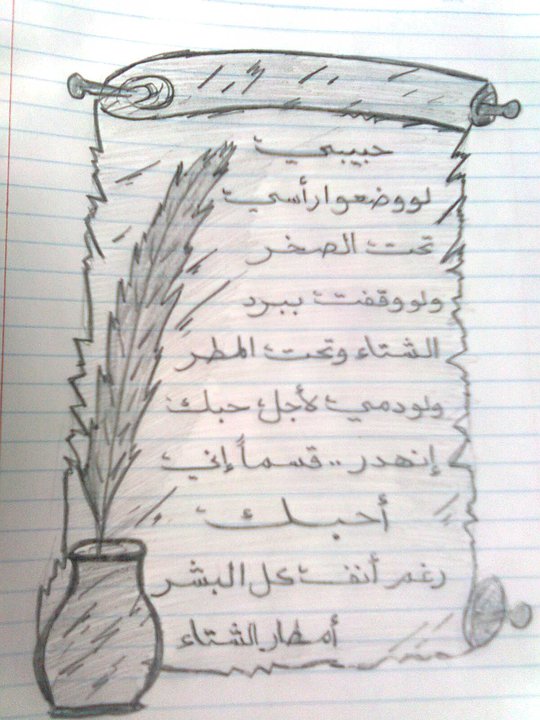 حبيبي
لو وضعوا رأسي
تحت الصخر
ولو وقفت ببرد
الشتاء وتحت المطر
ولو دمي لأجل حبك
إنهدر .. قسماً إني
أحبك
رغم أنف كل البشر
أمطار الشتاء